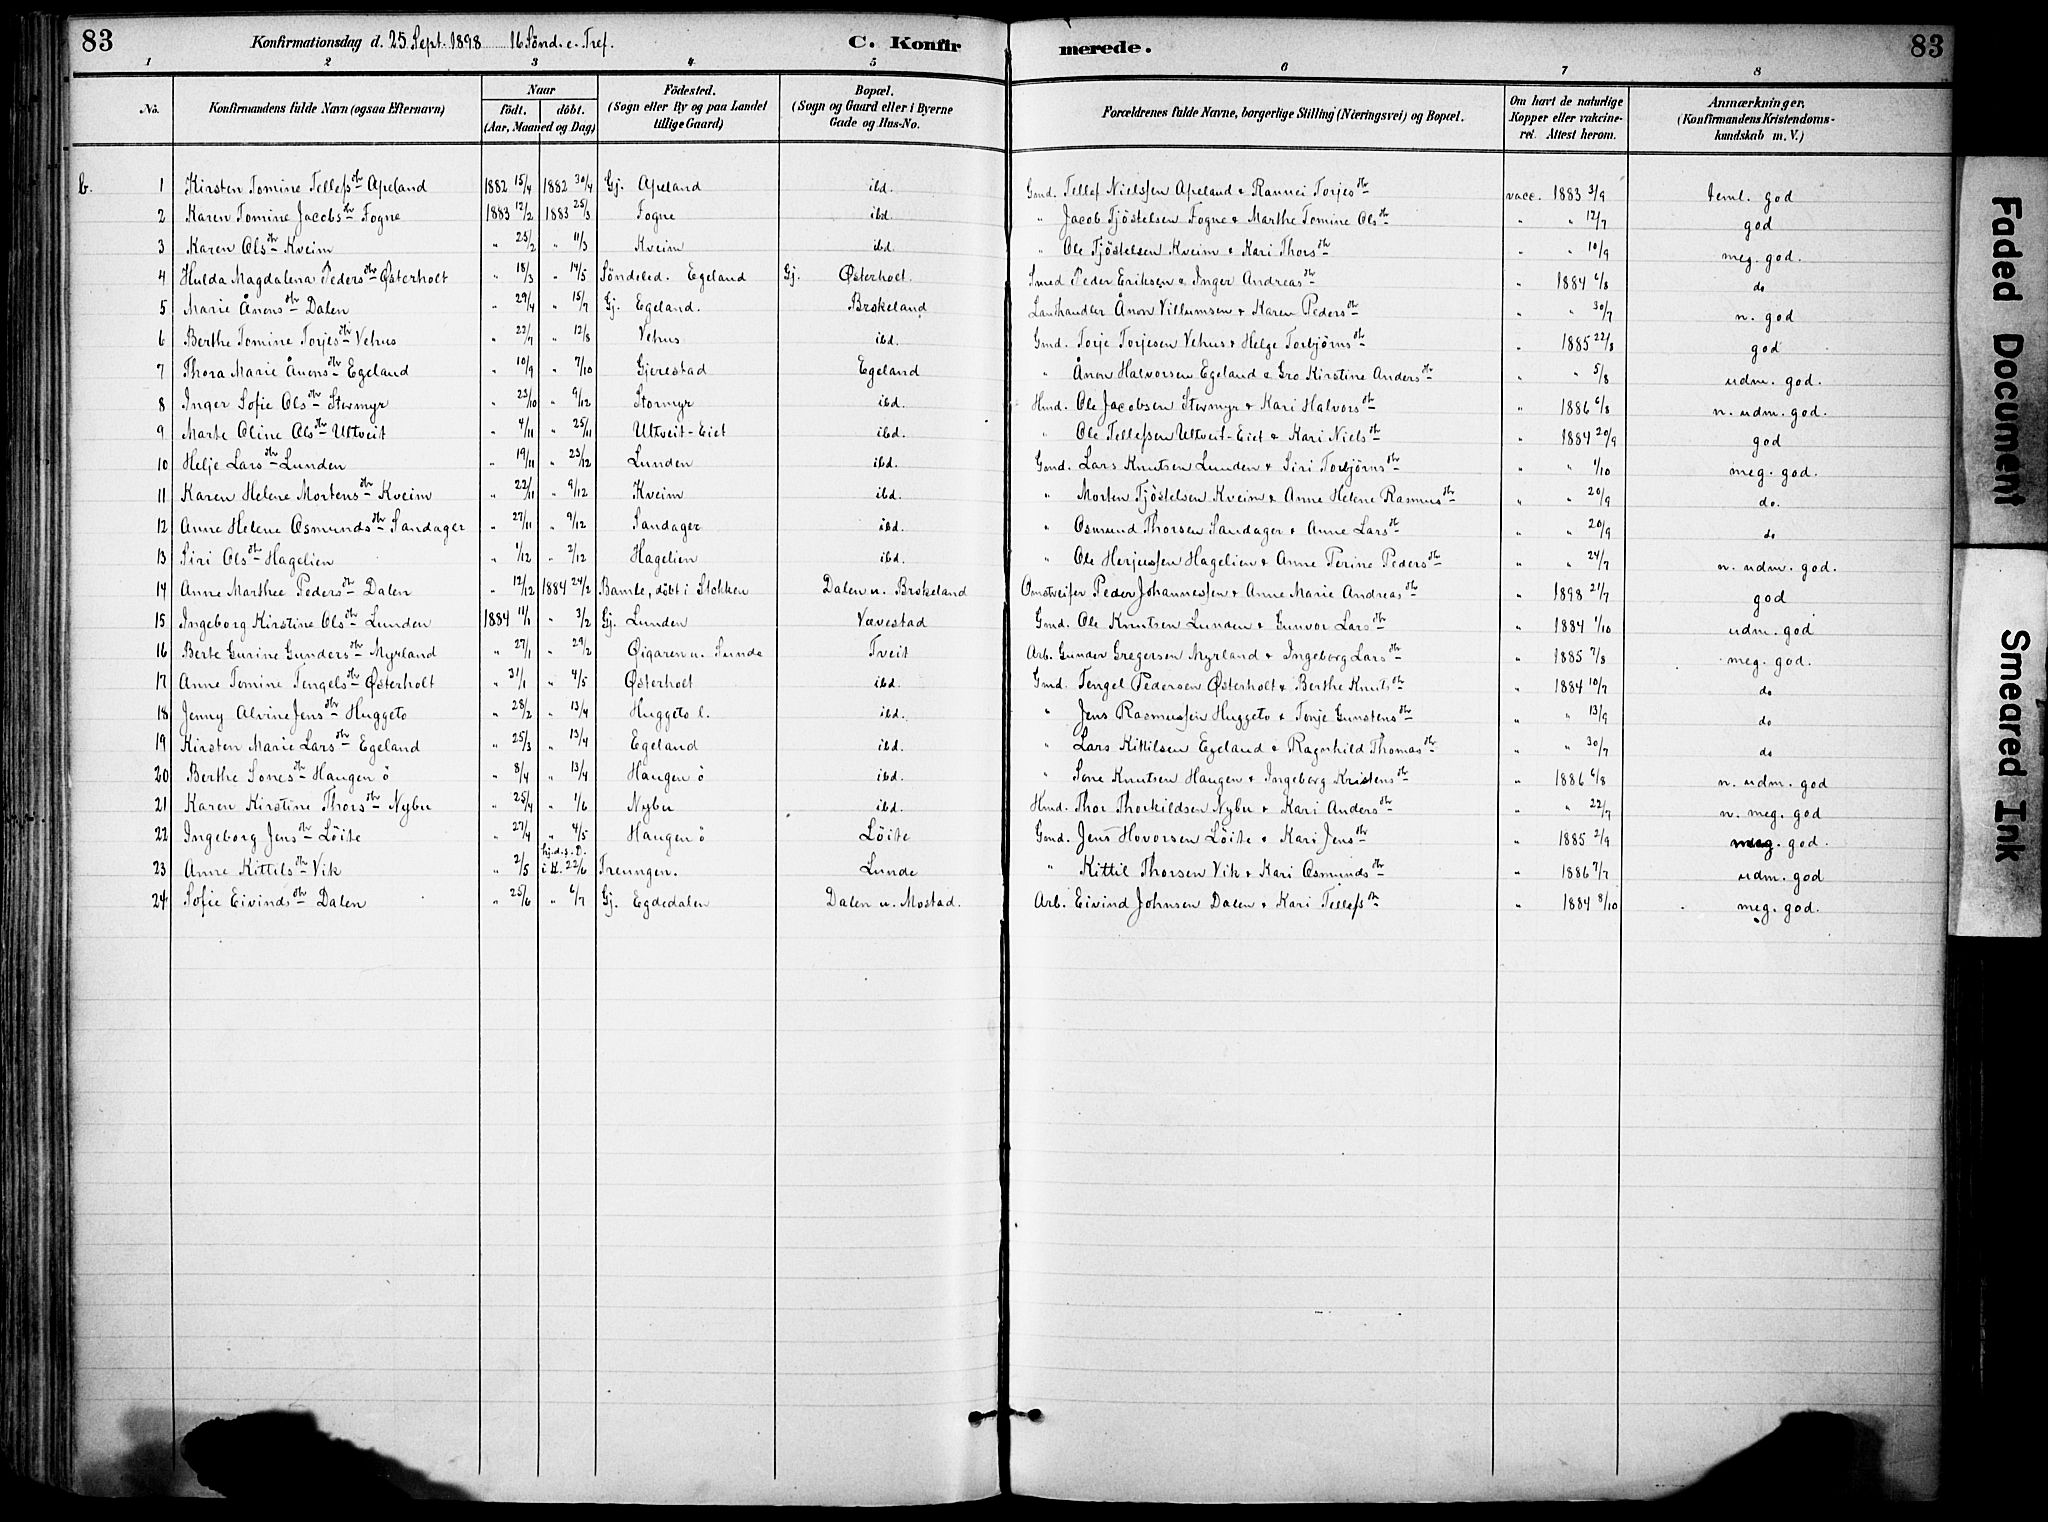 83 Konfirmationsdag d. 25 Sept. 1898 16 Sönd. e. Tref. C. Konfir merede. 83
1 2 3 4 5 6 7 8
No. Konfirmandens fulde Navn (ogsaa Efternavn) Naar födt. döbt. (Aar, Maaned og Dag) Födested. (Sogn eller By og paa Landet tillige Gaard) Bopæl. (Sogn og Gaard eller i Byerne Gade og Hus-No. Forældrenes fulde Navne, borgerlige Stilling (Næringsvei) og Bopæl. Om havt de naturlige Kopper eller vakcineret. Attest herom. Anmærkninger. (Konfirmandens Kristendomskundskab m. V.)
b. 1 Kirsten Tomine Tellefsdtr Apeland 1882 15/4 1882 30/4 Gj. Apeland ibd. Gmd. Tellef Nielsen Apeland & Rannei Torjesdtr vacc. 1883 3/9 teml. god
2 Karen Tomine Jacobsdtr Fogne 1883 12/2 1883 25/3 Fogne ibd. " Jacob Tjöstelsen Fogne & Marthe Tomine Olsdtr " " 12/7 god
3 Karen Olsdtr Kveim " 25/2 " 11/3 Kveim ibd. " Ole Tjöstelsen Kveim & Kari Thorsdtr " " 10/9 meg. god.
4 Hulda Magdalena Pedersdtr Østerholt " 18/3 " 14/5 Söndeled. Egeland Gj. Østerholt. Smed Peder Eriksen & Inger Andreasdtr " 1884 6/8 do
5 Marie Ånonsdtr Dalen " 29/4 " 15/7 Gj. Egeland. Brskeland Lanhandler Ånon Villumsen & Karen Pedersdtr " " 30/7 n. god
6 Berthe Tomine Torjesdtr Vehus " 22/7 " 12/8 Vehus ibd. Gmd. Torje Torjesen Vehus & Helge Torbjörnsdtr " 1885 22/8 god
7 Thora Marie Ånonsdtr Egeland " 10/9 " 7/10 Gjerestad Egeland " Ånon Halvorsen Egeland & Gro Kirstine Andersdtr " " 5/8 udm. god.
8 Inger Sofie Olsdtr Stormyr " 23/10 " 9/12 Stormyr ibd. Hmd. Ole Jacobsen Stormyr & Kari Halvorsdtr " 1886 6/8 n. udm. god.
9 Marte Oline Olsdtr Ultveit " 4/11 " 25/11 Ultveit-Eiet ibd. " Ole Tellefsen Ultveit-Eiet & Kari Nielsdtr " 1884 20/9 god
10 Helje Larsdtr Lunden " 19/11 " 23/12 Lunden ibd. Gmd. Lars Knutsen Lunden & Siri Torbjörnsdtr " " 1/10 meg. god.
11 Karen Helene Mortensdtr Kveim " 22/11 " 9/12 Kveim ibd. " Morten Tjöstelsen Kveim & Anne Helene Rasmusdtr " " 20/9 do.
12 Anne Helene Osmundsdtr Sandager " 27/11 " 9/12 Sandager ibd. " Osmund Thorsen Sandager & Anne Larsdtr " " 20/9 do
13 Siri Olsdtr Hagelien " 1/12 " 2/12 Hagelien ibd. " Ole Herjusen Hagelien & Anne Terine Pedersdtr " " 24/7 n. udm. god.
14 Anne Marthea Pedersdtr Dalen " 12/12 1884 24/2 Bamle, döbt i Stokken Dalen u. Brskeland Omstreifer Peder Johannessen & Anne Marie Andreasdtr " 1898 21/7 god
15 Ingeborg Kirstine Olsdtr Lunden 1884 11/1 " 3/2 Gj. Lunden Vævestad Gmd. Ole Knutsen Lunden & Gunvor Larsdtr " 1884 1/10 udm. god
16 Berte Gurine Gundersdtr Myrland " 27/1 " 29/2 Øigaren u. Sunde Tveit Arb. Gunder Gregersen Myrland & Ingeborg Larsdtr " 1885 7/8 meg. god.
17 Anne Tomine Tengelsdtr Østerholt " 31/1 " 4/5 Østerholt ibd. Gmd. Tengel Pedersen Østerholt & Berthe Knutsdtr " 1884 10/7 do
18 Jenny Alvine Jensdtr Huggeto " 28/2 " 13/4 Huggeto l. ibd. " Jens Rasmussen Huggeto & Tonje Gunstensdtr " " 13/9 do
19 Kirsten Marie Larsdtr Egeland " 25/3 " 13/4 Egeland ibd. " Lars Kittilsen Egeland & Ragnhild Thomasdtr " " 30/7 do
20 Berthe Sonesdtr Haugen ö " 8/4 " 13/4 Haugen ö ibd. " Sone Knutsen Haugen & Ingeborg Kristensdtr " 1886 6/8 n. udm. god
21 Karen Kirstine Thorsdtr Nybu " 25/4 " 1/6 Nybu ibd. Hmd. Thor Thorkildsen Nybu & Kari Andersdtr " " 22/7 n. meg. god
22 Ingeborg Jensdtr Löite " 27/4 " 4/5 Haugen ö Löite Gmd. Jens Hovorsen Löite & Kari Jensdtr " 1885 2/9 meg. god.
23 Anne Kittilsdtr Vik " 2/5 hj.d.s.D. i K. 22/6 Treungen. Lunde " Kittil Thorsen Vik & Kari Osmundsdtr " 1886 7/7 udm. god
24 Sofie Eivindsdtr Dalen " 25/6 " 6/7 Gj. Egdedalen Dalen u. Mostad. Arb. Eivind Johnsen Dalen & Kari Tellefsdtr " 1884 8/10 meg. god.
Faded Document
Smeared Ink